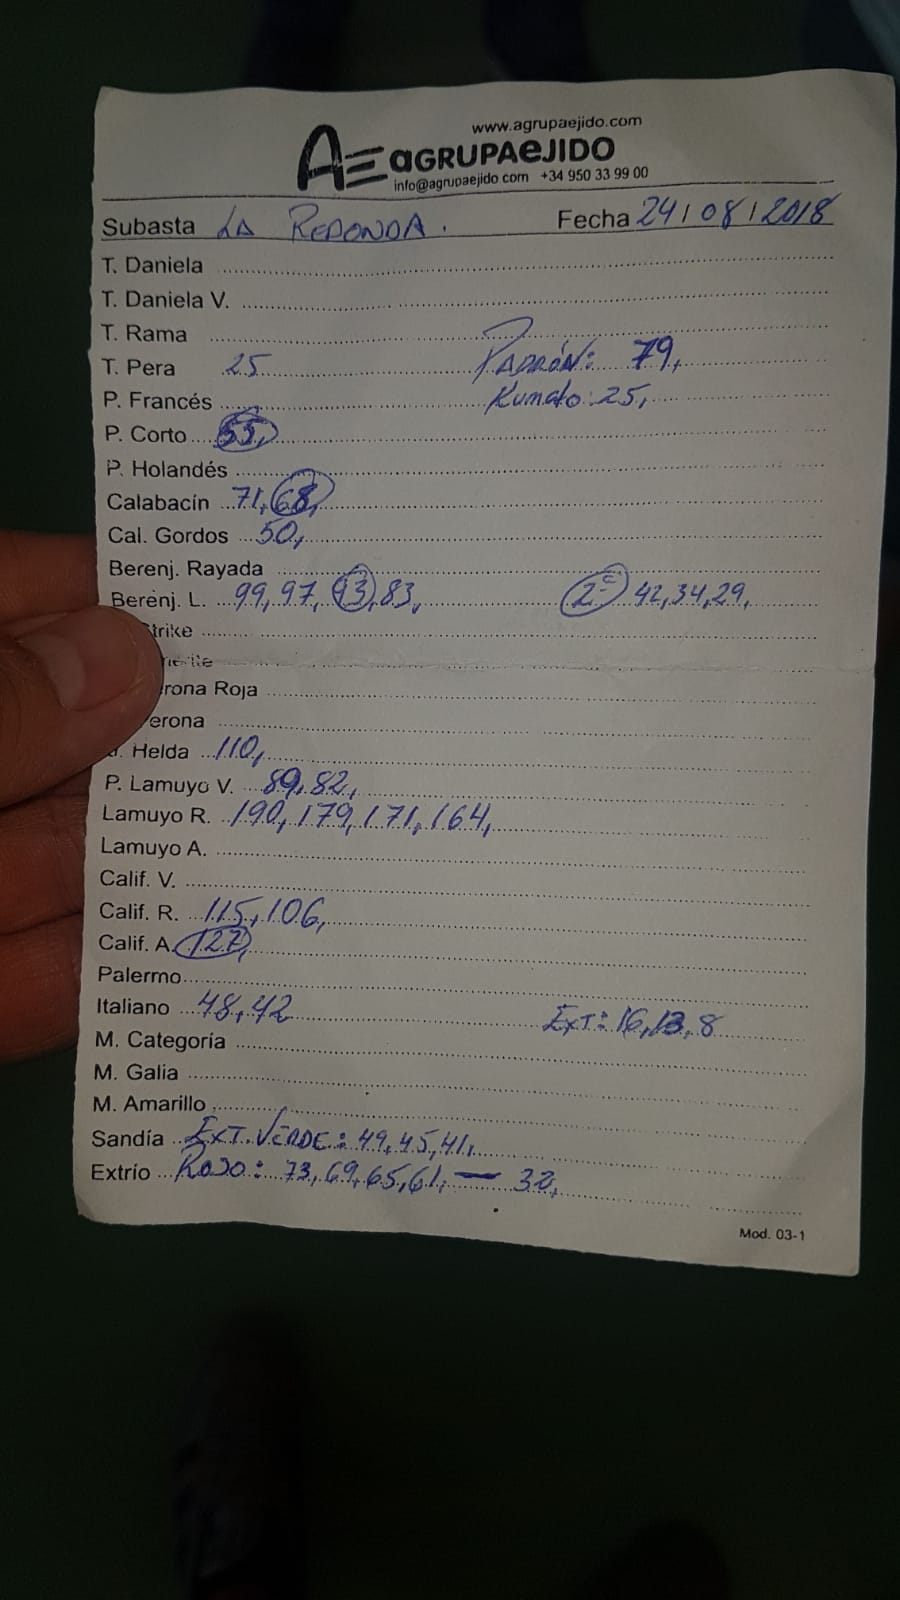 www.agrupaejido.com
AE aGRUPAeJIDO
info@agrupaejido.com +34 950 33 99 00
Subasta LA REDONDA. Fecha 24/08/2018
T. Daniela
T. Daniela V.
T. Rama
T. Pera 25 PADRÓN: 79,
P. Francés Kumato: 25,
P. Corto 55,
P. Holandés
Calabacín 71, 68,
Cal. Gordos 50,
Berenj. Rayada
Berenj. L. 99, 97, 93, 83, 2ª 42, 34, 29,
Strike
rona Roja
erona
J. Helda 110,
P. Lamuyo V. 89, 82,
Lamuyo R. 190, 179, 171, 164,
Lamuyo A.
Calif. V.
Calif. R. 115, 106,
Calif. A. 127,
Palermo
Italiano 48, 42 EXT: 16, 13, 8
M. Categoría
M. Galia
M. Amarillo
Sandía EXT. VERDE: 49, 45, 41,
Extrío ROJO: 73, 69, 65, 61, —
Mod. 03-1